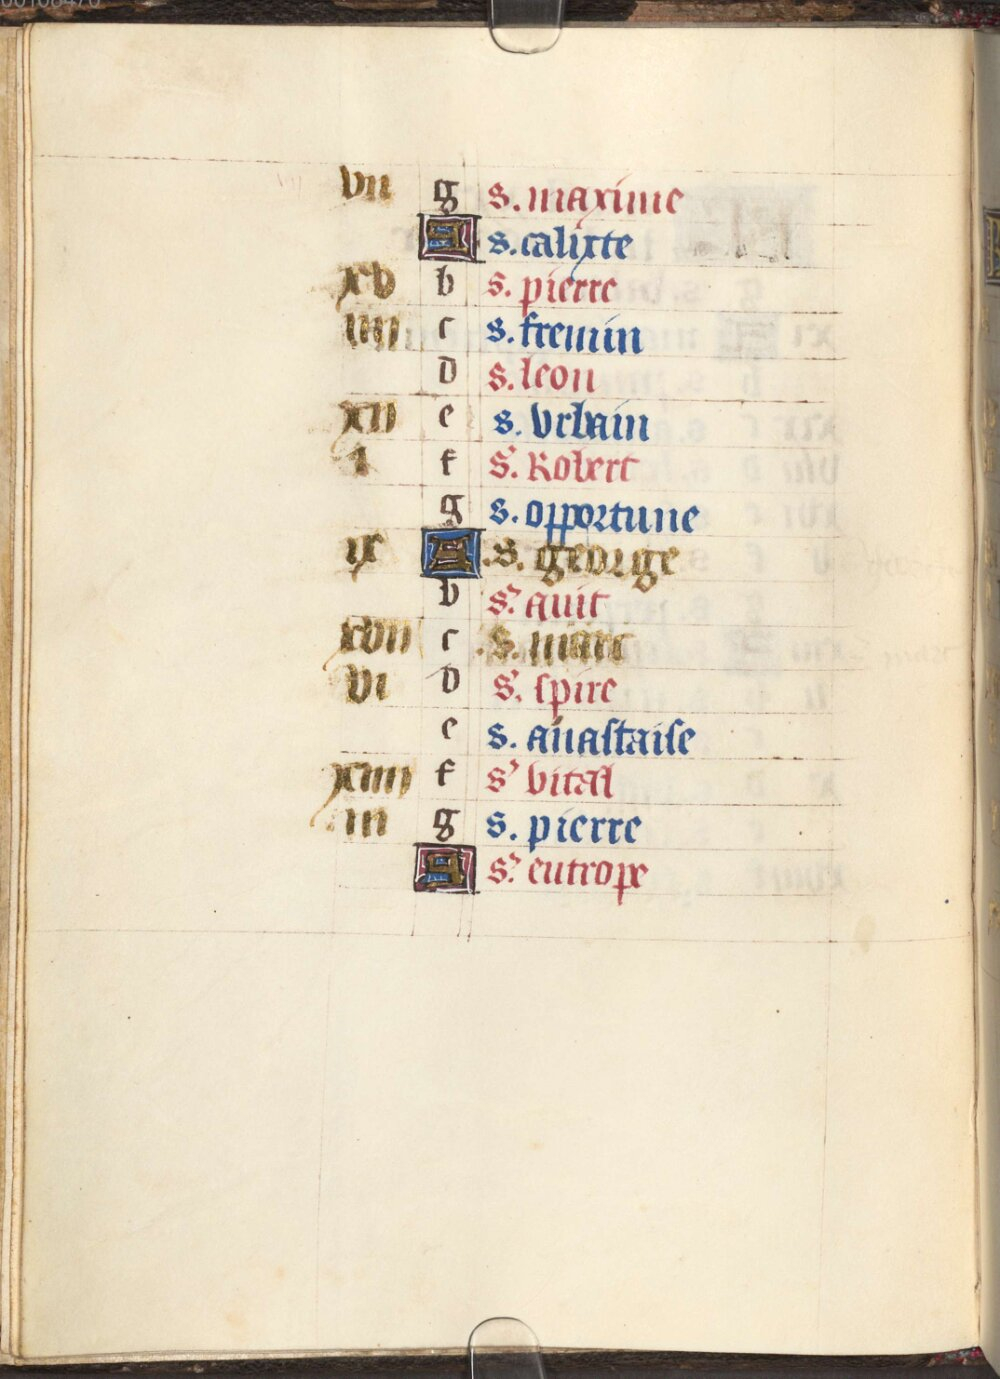 vii g s. maxime
A s. calixte
xv b s. pierre
iiii c s. fremin
d s. leon
xii e s. Vrbain
i f s. Robert
g s. opportune
ix A .s. george
b s. auit
xvii c .s. marc
vi d s. spire
e s. anastaise
xiiii f s. vital
iii g s. pierre
A s. eutrope